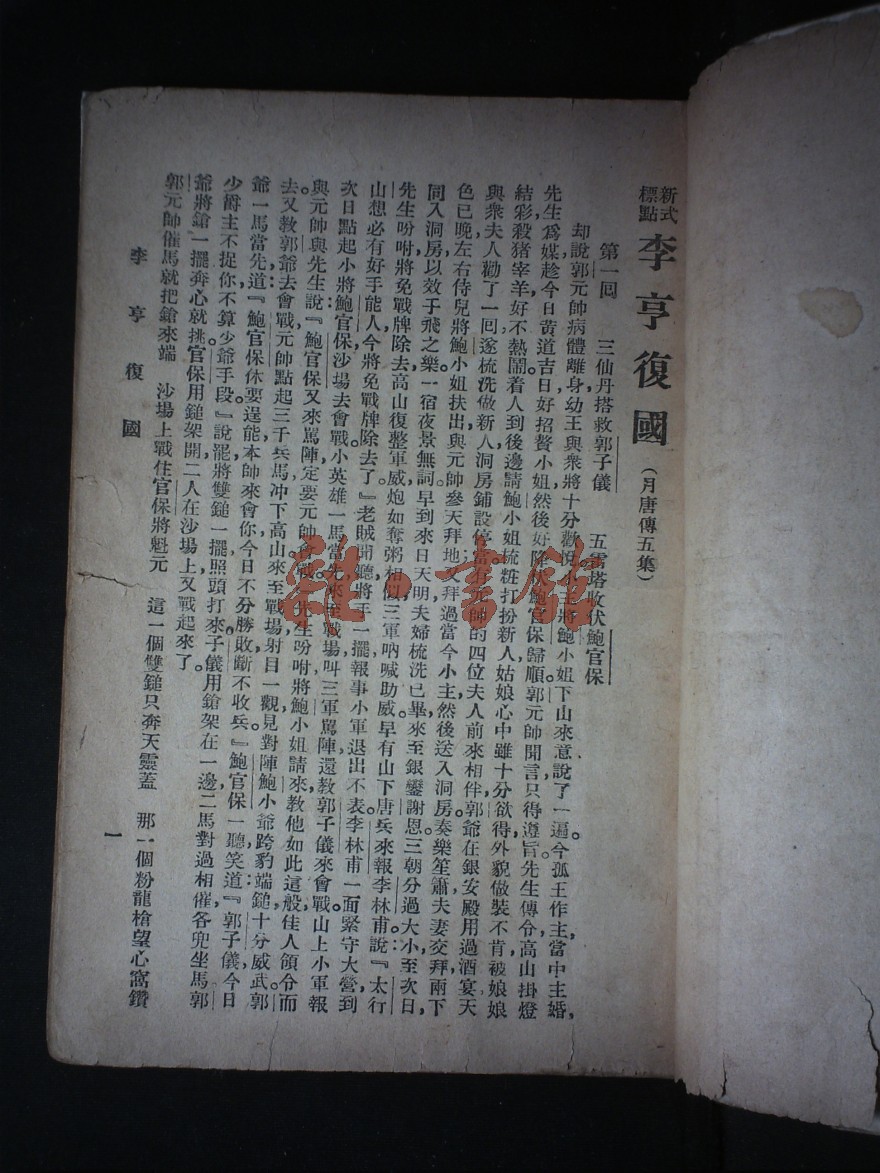 新式標點 李亨復國（月唐傳五集）
第一回　三仙丹搭救郭子儀　五雲塔收伏鮑官保
却說郭元帥病體離身幼王與衆將十分歡悅小主將鮑小姐下山來意說了一遍。今孤王作主，當中主婚，
先生爲媒趁今日黃道吉日好招贅小姐，然後好降伏鮑官保歸順。郭元帥聞言只得遵旨。先生傳令，高山掛燈
結彩，殺猪宰羊，好不熱鬧。着人到後邊請鮑小姐梳粧打扮新人姑娘心中雖十分欲得外貌做裝不肯被娘娘
與衆夫人勸了一回遂梳洗做新人洞房鋪設停當有元帥的四位夫人前來相伴。郭爺在銀安殿用過酒宴天
色已晚左右侍兒將鮑小姐扶出與元帥參天拜地又拜過當今小主，然後送入洞房。奏樂笙簫夫妻交拜兩下
同入洞房以效于飛之樂。一宿夜景無詞早到來日天明夫婦梳洗已畢來至銀鑾謝恩。三朝分過大小至次日，
先生吩咐將免戰牌除去高山復整軍威炮如奪粥相似三軍吶喊助威。早有山下唐兵來報李林甫說：『太行
山想必有好手能人，今將免戰牌除去了。』老賊聞聽將手一擺報事小軍退出不表李林甫一面緊守大營到
次日點起小將鮑官保沙場去會戰。小英雄一馬當先來至戰場叫三軍罵陣，還教郭子儀來會戰山上小軍報
與元帥與先生說：『鮑官保又來罵陣定要元帥會戰。』先生吩咐將鮑小姐請來教他如此這般佳人領分而
去。又教郭爺去會戰元帥點起三千兵馬冲下高山來至戰場射目一觀見對陣鮑小爺跨豹端鎚十分威武。郭
爺一馬當先道：『鮑官保休要逞能本帥來會你今日不分勝敗斷不收兵。』鮑官保一聽笑道：『郭子儀今日
少爵主不捉你，不算少爺手段。』說罷將雙鎚一擺照頭打來子儀用鎗架在一邊二馬對過相催各兜坐馬。郭
爺將鎗一擺奔心就挑官保用鎚架開二人在沙場上又戰起來了。
郭元帥催馬就把鎗來端　沙場上戰住官保將魁元　這一個雙鎚只奔天靈蓋　那一個粉龍槍望心窩鑽
李亨復國　一
雒口書館